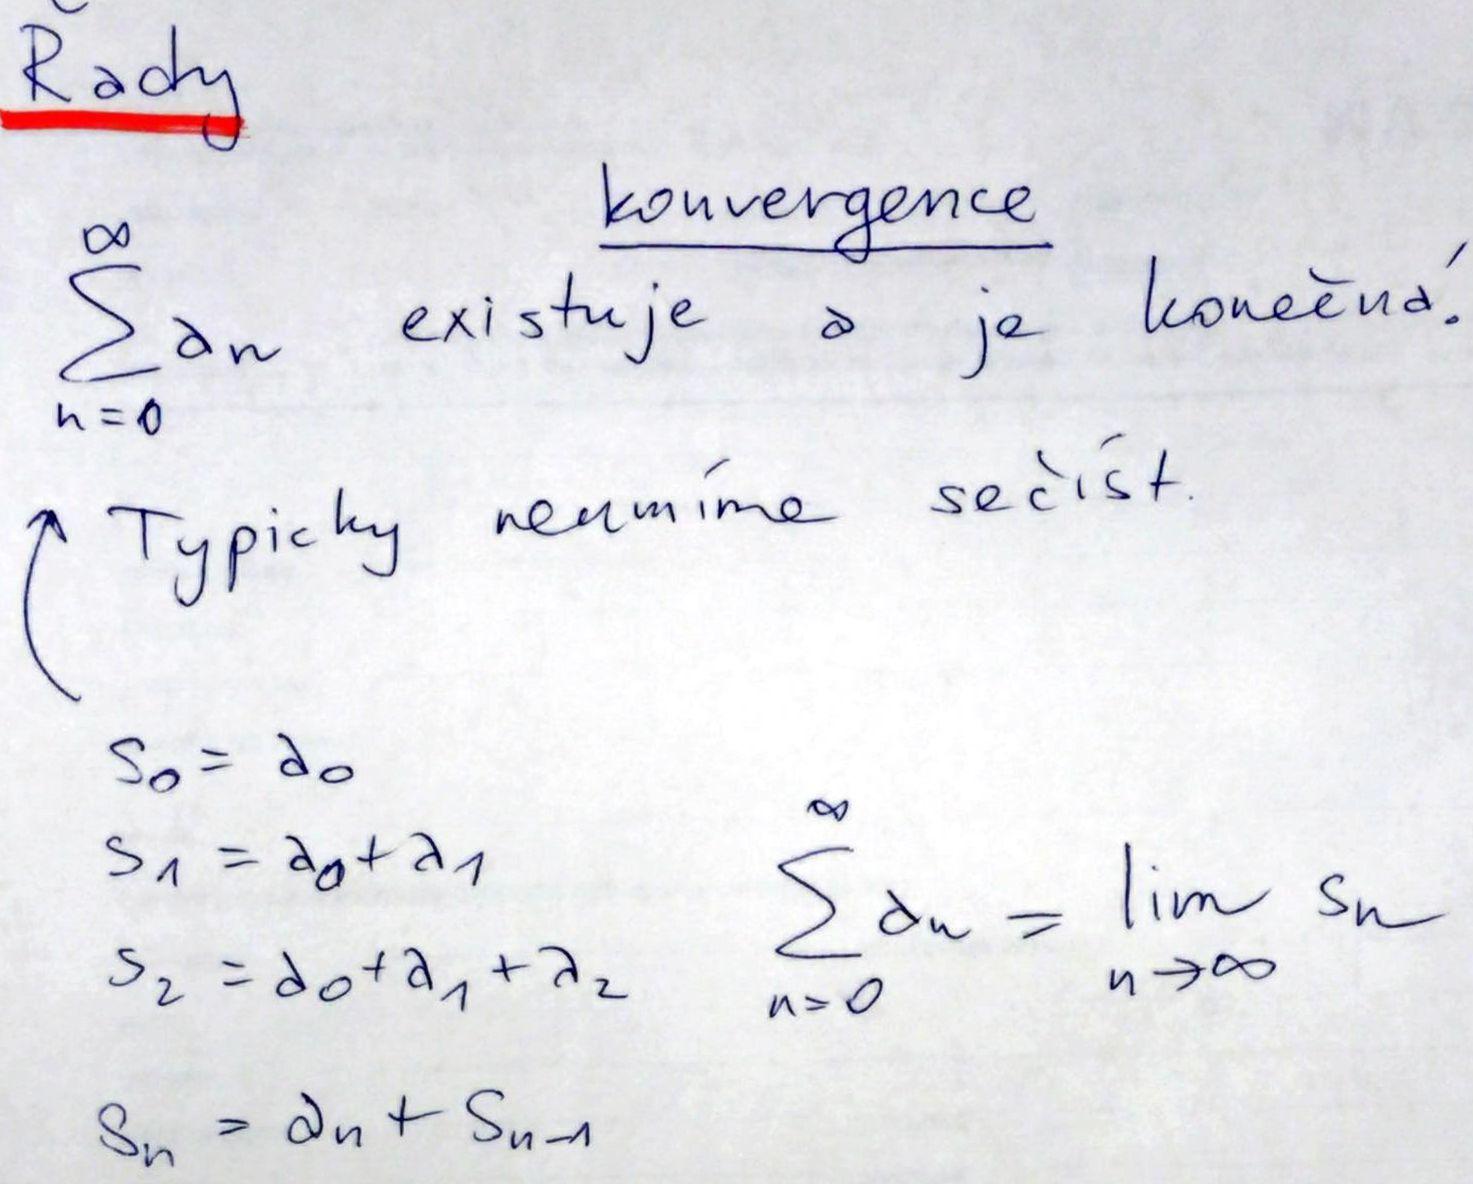 Řady
konvergence
∞
∑ aₙ existuje a je konečná.
n=0
Typicky neumíme sečíst.
s₀ = a₀
s₁ = a₀+a₁
s₂ = a₀+a₁+a₂
∞
∑ aₙ = lim sₙ
n=0 n→∞
sₙ = aₙ + sₙ₋₁